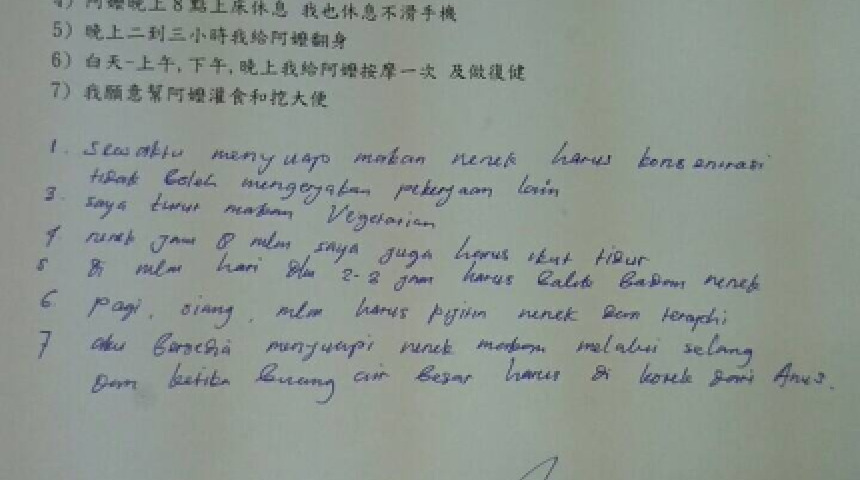 4) 阿嬤晚上8點上床休息 我也休息不滑手機
5) 晚上二到三小時我給阿嬤翻身
6) 白天-上午,下午,晚上我給阿嬤按摩一次 及做復健
7) 我願意幫阿嬤灌食和挖大便
1. Sewaktu menyuap makan nenek harus konsentrasi
tidak boleh mengerjakan pekerjaan lain
3. saya turut makan Vegetarian
4 nenek jam 8 mlm saya juga harus ikut tidur
5 di mlm hari dlm 2-3 jam harus balik badan nenek
6 pagi, siang, mlm harus pijitin nenek dan teraphi
7 aku bersedia menyuapi nenek makan melalui selang
dan ketika buang air besar harus di korek dari Anus.